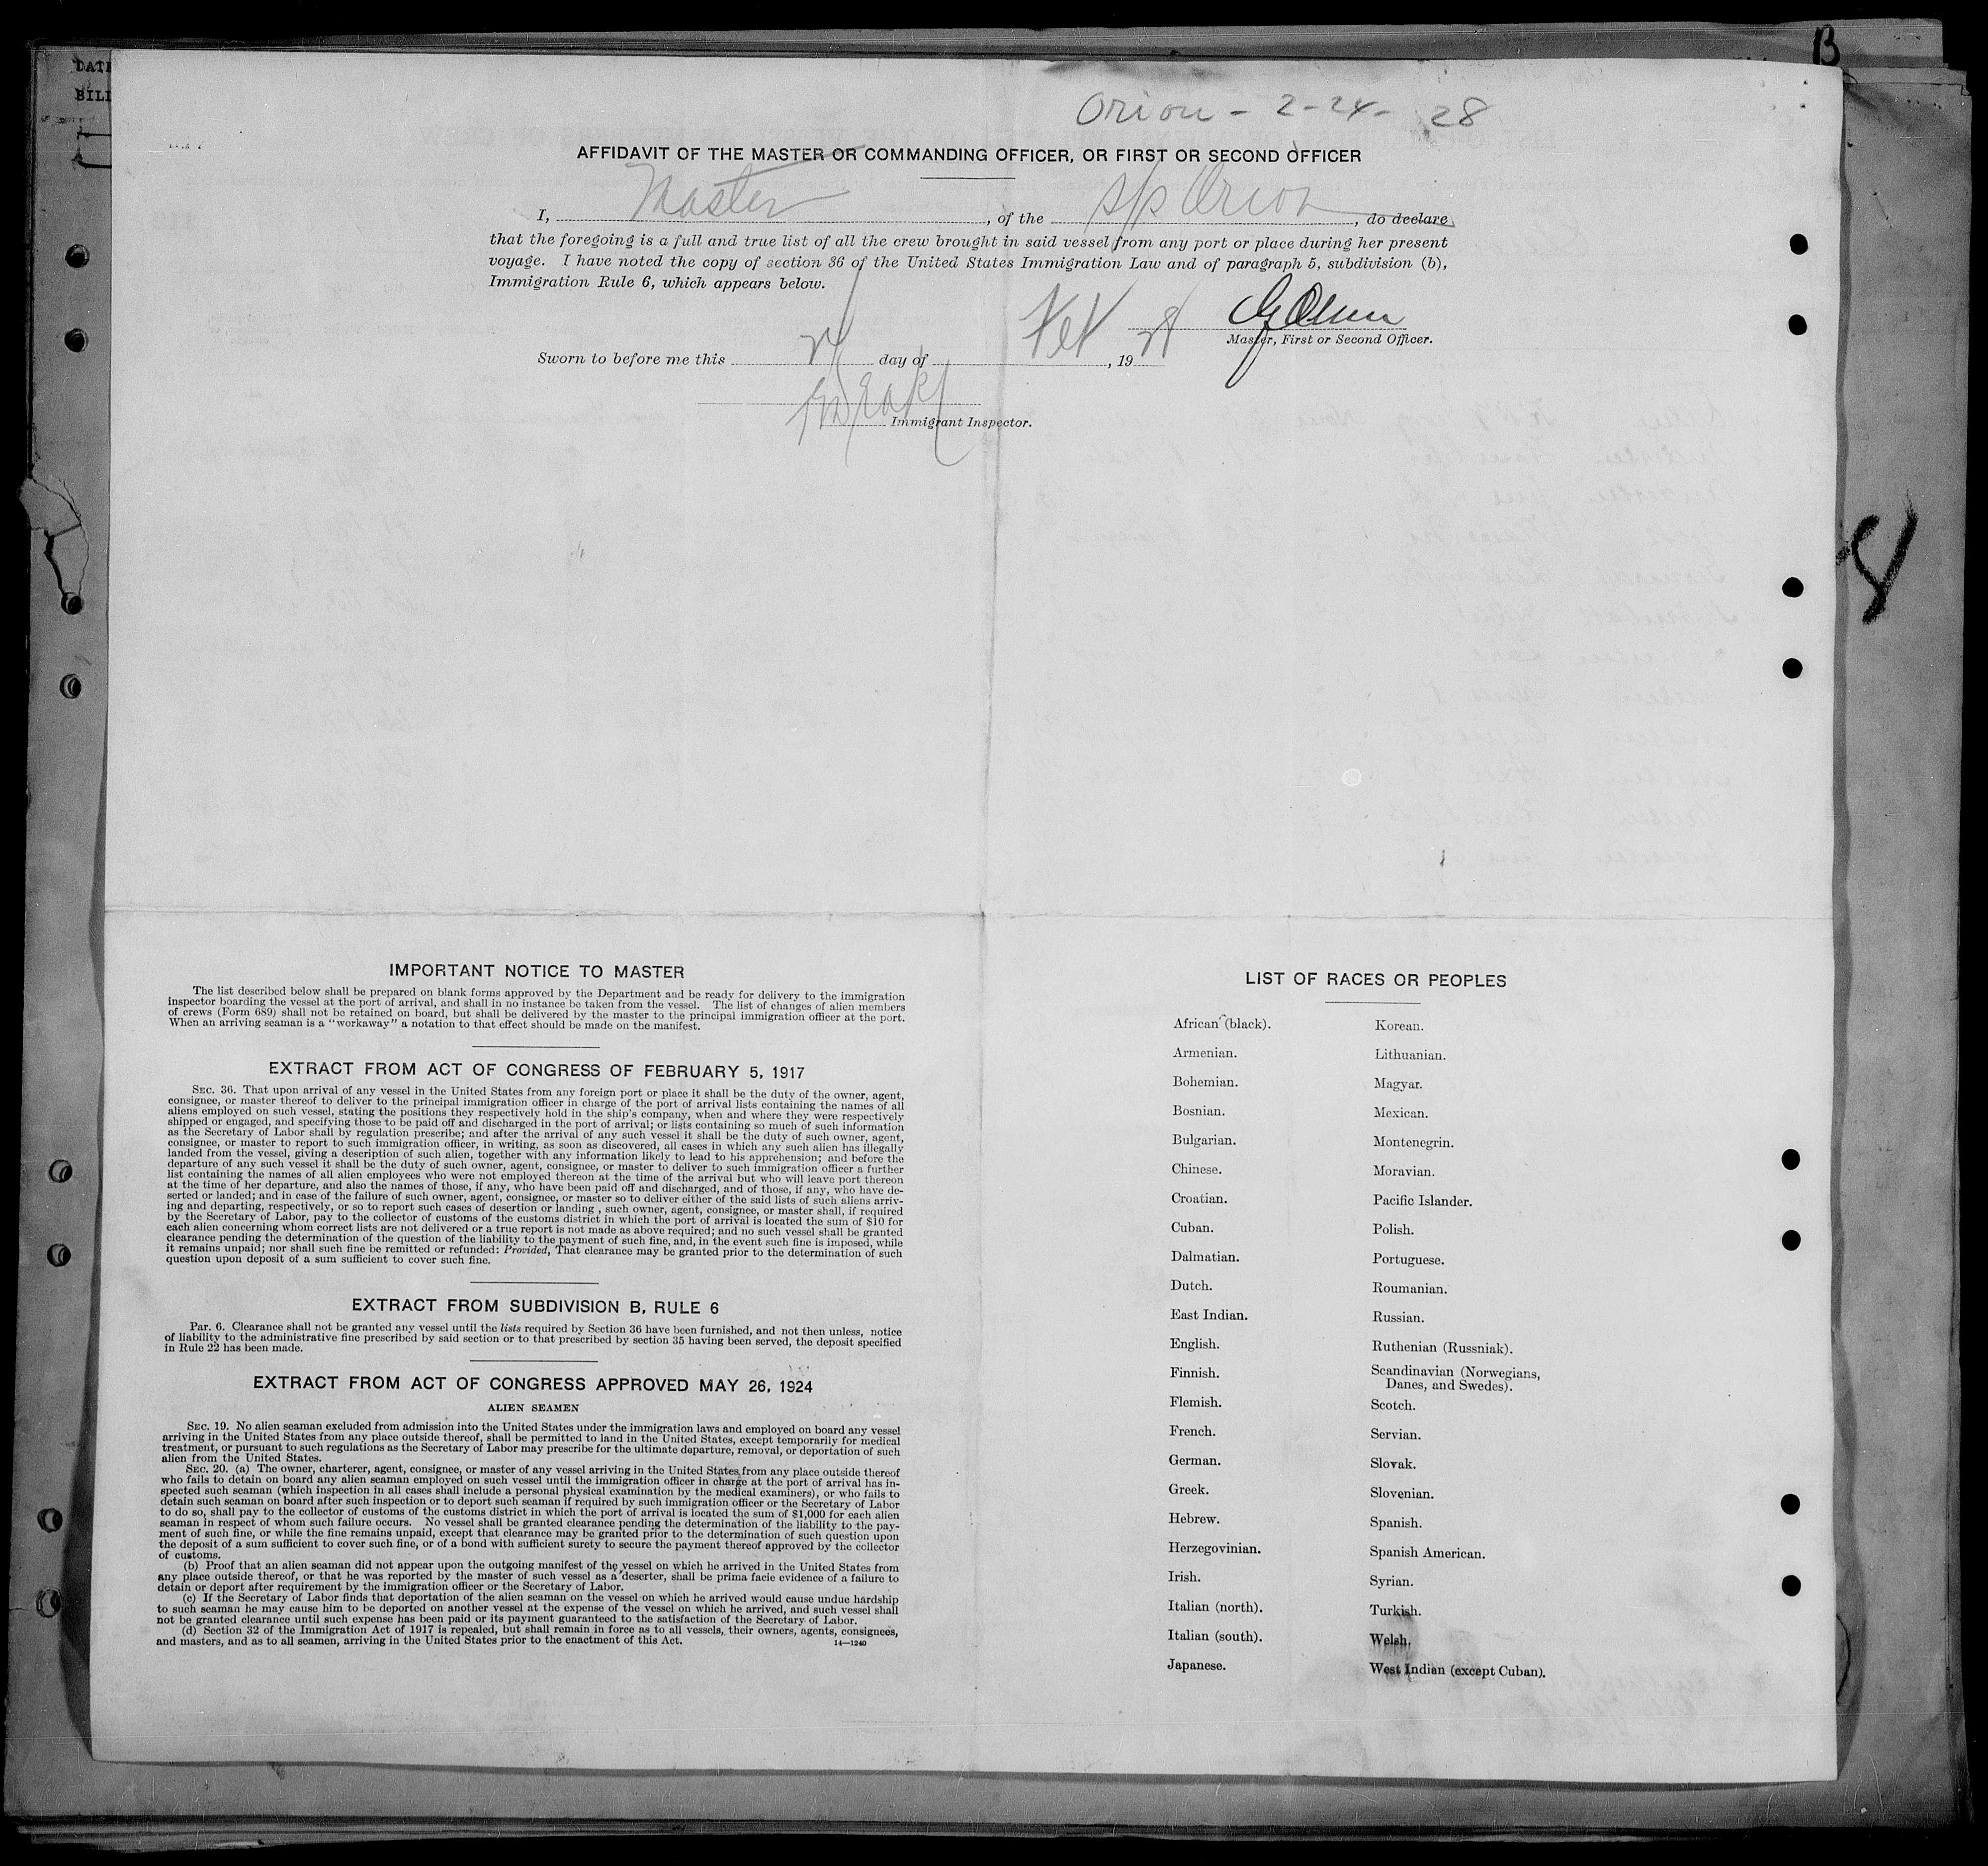 B
DATE
BILL
Orion - 2-24-28
AFFIDAVIT OF THE MASTER OR COMMANDING OFFICER, OR FIRST OR SECOND OFFICER
I, Master, of the s/s Orion, do declare
that the foregoing is a full and true list of all the crew brought in said vessel from any port or place during her present
voyage. I have noted the copy of section 36 of the United States Immigration Law and of paragraph 5, subdivision (b),
Immigration Rule 6, which appears below.
Master, First or Second Officer.
Sworn to before me this 24 day of Feb, 1928
Immigrant Inspector.
8
IMPORTANT NOTICE TO MASTER
The list described below shall be prepared on blank forms approved by the Department and be ready for delivery to the immigration
inspector boarding the vessel at the port of arrival, and shall in no instance be taken from the vessel. The list of changes of alien members
of crews (Form 689) shall not be retained on board, but shall be delivered by the master to the principal immigration officer at the port.
When an arriving seaman is a "workaway" a notation to that effect should be made on the manifest.
EXTRACT FROM ACT OF CONGRESS OF FEBRUARY 5, 1917
SEC. 36. That upon arrival of any vessel in the United States from any foreign port or place it shall be the duty of the owner, agent,
consignee, or master thereof to deliver to the principal immigration officer in charge of the port of arrival lists containing the names of all
aliens employed on such vessel, stating the positions they respectively hold in the ship's company, when and where they were respectively
shipped or engaged, and specifying those to be paid off and discharged in the port of arrival; or lists containing so much of such information
as the Secretary of Labor shall by regulation prescribe; and after the arrival of any such vessel it shall be the duty of such owner, agent,
consignee, or master to report to such immigration officer, in writing, as soon as discovered, all cases in which any such alien has illegally
landed from the vessel, giving a description of such alien, together with any information likely to lead to his apprehension; and before the
departure of any such vessel it shall be the duty of such owner, agent, consignee, or master to deliver to such immigration officer a further
list containing the names of all alien employees who were not employed thereon at the time of the arrival but who will leave port thereon
at the time of her departure, and also the names of those, if any, who have been paid off and discharged, and of those, if any, who have de-
serted or landed; and in case of the failure of such owner, agent, consignee, or master so to deliver either of the said lists of such aliens arriv-
ing and departing, respectively, or so to report such cases of desertion or landing, such owner, agent, consignee, or master shall, if required
by the Secretary of Labor, pay to the collector of customs of the customs district in which the port of arrival is located the sum of $10 for
each alien concerning whom correct lists are not delivered or a true report is not made as above required; and no such vessel shall be granted
clearance pending the determination of the question of the liability to the payment of such fine, and, in the event such fine is imposed, while
it remains unpaid; nor shall such fine be remitted or refunded: Provided, That clearance may be granted prior to the determination of such
question upon deposit of a sum sufficient to cover such fine.
EXTRACT FROM SUBDIVISION B, RULE 6
PAR. 6. Clearance shall not be granted any vessel until the lists required by Section 36 have been furnished, and not then unless, notice
of liability to the administrative fine prescribed by said section or to that prescribed by section 35 having been served, the deposit specified
in Rule 22 has been made.
EXTRACT FROM ACT OF CONGRESS APPROVED MAY 26, 1924
ALIEN SEAMEN
SEC. 19. No alien seaman excluded from admission into the United States under the immigration laws and employed on board any vessel
arriving in the United States from any place outside thereof, shall be permitted to land in the United States, except temporarily for medical
treatment, or pursuant to such regulations as the Secretary of Labor may prescribe for the ultimate departure, removal, or deportation of such
alien from the United States.
SEC. 20. (a) The owner, charterer, agent, consignee, or master of any vessel arriving in the United States from any place outside thereof
who fails to detain on board any alien seaman employed on such vessel until the immigration officer in charge at the port of arrival has in-
spected such seaman (which inspection in all cases shall include a personal physical examination by the medical examiners), or who fails to
detain such seaman on board after such inspection or to deport such seaman if required by such immigration officer or the Secretary of Labor
to do so, shall pay to the collector of customs of the customs district in which the port of arrival is located the sum of $1,000 for each alien
seaman in respect of whom such failure occurs. No vessel shall be granted clearance pending the determination of the liability to the pay-
ment of such fine, or while the fine remains unpaid, except that clearance may be granted prior to the determination of such question upon
the deposit of a sum sufficient to cover such fine, or of a bond with sufficient surety to secure the payment thereof approved by the collector
of customs.
(b) Proof that an alien seaman did not appear upon the outgoing manifest of the vessel on which he arrived in the United States from
any place outside thereof, or that he was reported by the master of such vessel as a deserter, shall be prima facie evidence of a failure to
detain or deport after requirement by the immigration officer or the Secretary of Labor.
(c) If the Secretary of Labor finds that deportation of the alien seaman on the vessel on which he arrived would cause undue hardship
to such seaman he may cause him to be deported on another vessel at the expense of the vessel on which he arrived, and such vessel shall
not be granted clearance until such expense has been paid or its payment guaranteed to the satisfaction of the Secretary of Labor.
(d) Section 32 of the Immigration Act of 1917 is repealed, but shall remain in force as to all vessels, their owners, agents, consignees,
and masters, and as to all seamen, arriving in the United States prior to the enactment of this Act.
14—1240
LIST OF RACES OR PEOPLES
African (black).
Armenian.
Bohemian.
Bosnian.
Bulgarian.
Chinese.
Croatian.
Cuban.
Dalmatian.
Dutch.
East Indian.
English.
Finnish.
Flemish.
French.
German.
Greek.
Hebrew.
Herzegovinian.
Irish.
Italian (north).
Italian (south).
Japanese.
Korean.
Lithuanian.
Magyar.
Mexican.
Montenegrin.
Moravian.
Pacific Islander.
Polish.
Portuguese.
Roumanian.
Russian.
Ruthenian (Russniak).
Scandinavian (Norwegians,
Danes, and Swedes).
Scotch.
Servian.
Slovak.
Slovenian.
Spanish.
Spanish American.
Syrian.
Turkish.
Welsh.
West Indian (except Cuban).